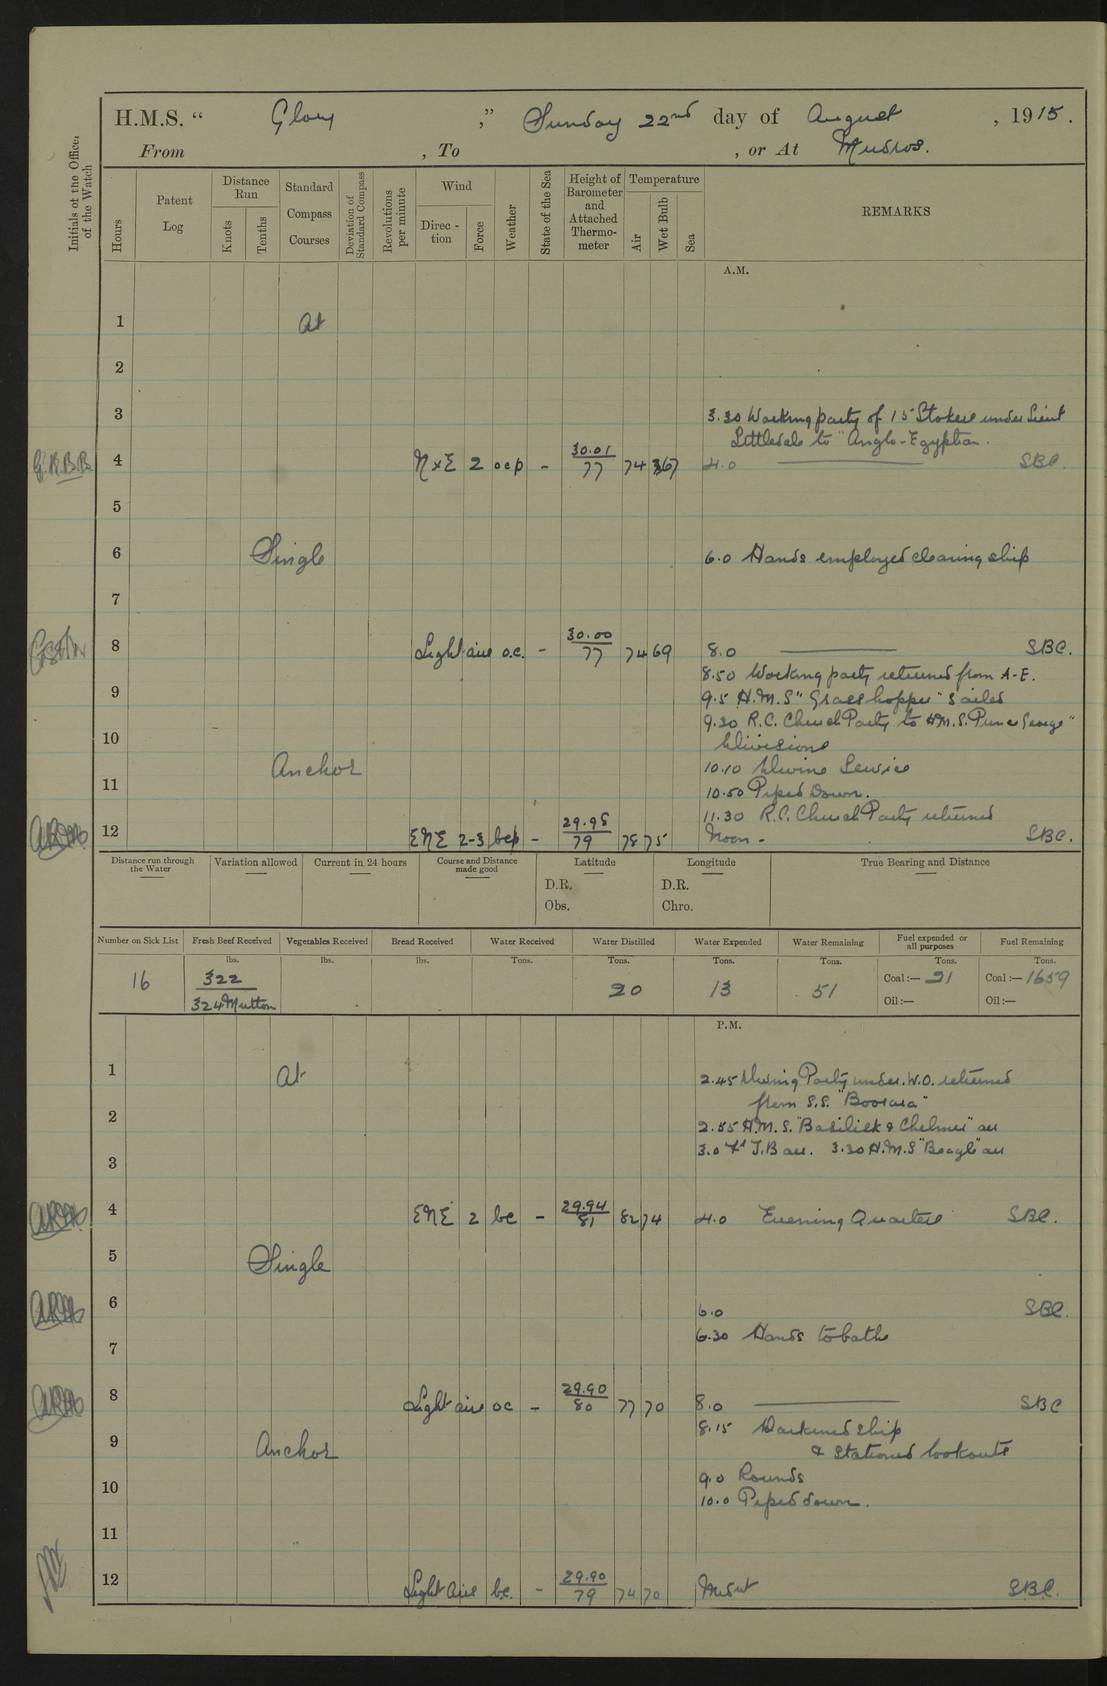 H.M.S. “ Glory ,” Sunday 22nd day of August , 1915.
From , To , or At Mudros.
Initials of the Officer of the Watch
Hours
Patent Log
Distance Run
Knots
Tenths
Standard Compass Courses
Deviation of Standard Compass
Revolutions per minute
Wind
Direction
Force
Weather
State of the Sea
Height of Barometer and Attached Thermometer
Temperature
Air
Wet Bulb
Sea
REMARKS
A.M.
1 At
2
3 3.30 Working party of 15 Stokers under Lieut
Littledale to "Anglo-Egyptian.
4 N x E 2 ocp - 30.01/77 74 67 4.0 SBC.
5
6 Single 6.0 Hands employed cleaning ship
7
8 Light airs o.c. - 30.00/77 74 69 8.0 SBC.
8.50 Working party returned from A-E.
9 9.5 H.M.S "Grasshopper" Sailed
9.30 R.C. Church Party to H.M.S. Prince George"
10 Divisions
Anchor 10.10 Divine Service
11 10.50 Piped Down.
11.30 R.C. Church Party returned
12 ENE 2-3 bcp - 29.98/79 78 75 Noon - SBC.
Distance run through the Water
Variation allowed
Current in 24 hours
Course and Distance made good
Latitude
Longitude
True Bearing and Distance
D.R. D.R.
Obs. Chro.
Number on Sick List
Fresh Beef Received
Vegetables Received
Bread Received
Water Received
Water Distilled
Water Expended
Water Remaining
Fuel expended or all purposes
Fuel Remaining
lbs. lbs. lbs. Tons. Tons. Tons. Tons. Tons. Tons.
16 322 20 13 51 Coal:— 21 Coal:— 1659
324 Mutton Oil:— Oil:—
P.M.
1 At 2.45 Diving Party under W.O. returned
from S.S. "Boorara"
2 2.55 H.M.S. "Basilisk & Chelmer" arr
3.0 T.B arr. 3.30 H.M.S "Beagle" arr
3
4 ENE 2 bc - 29.94/81 82 74 4.0 Evening Quarters SBC.
5 Single
6 6.0 SBC.
6.30 Hands to bathe
7
8 Light airs oc - 29.90/80 77 70 8.0 SBC
8.15 Darkened ship
9 Anchor & stationed lookouts
9.0 Rounds
10 10.0 Piped down.
11
12 Light Airs bc. - 29.90/79 74 70 Midnt SBC.